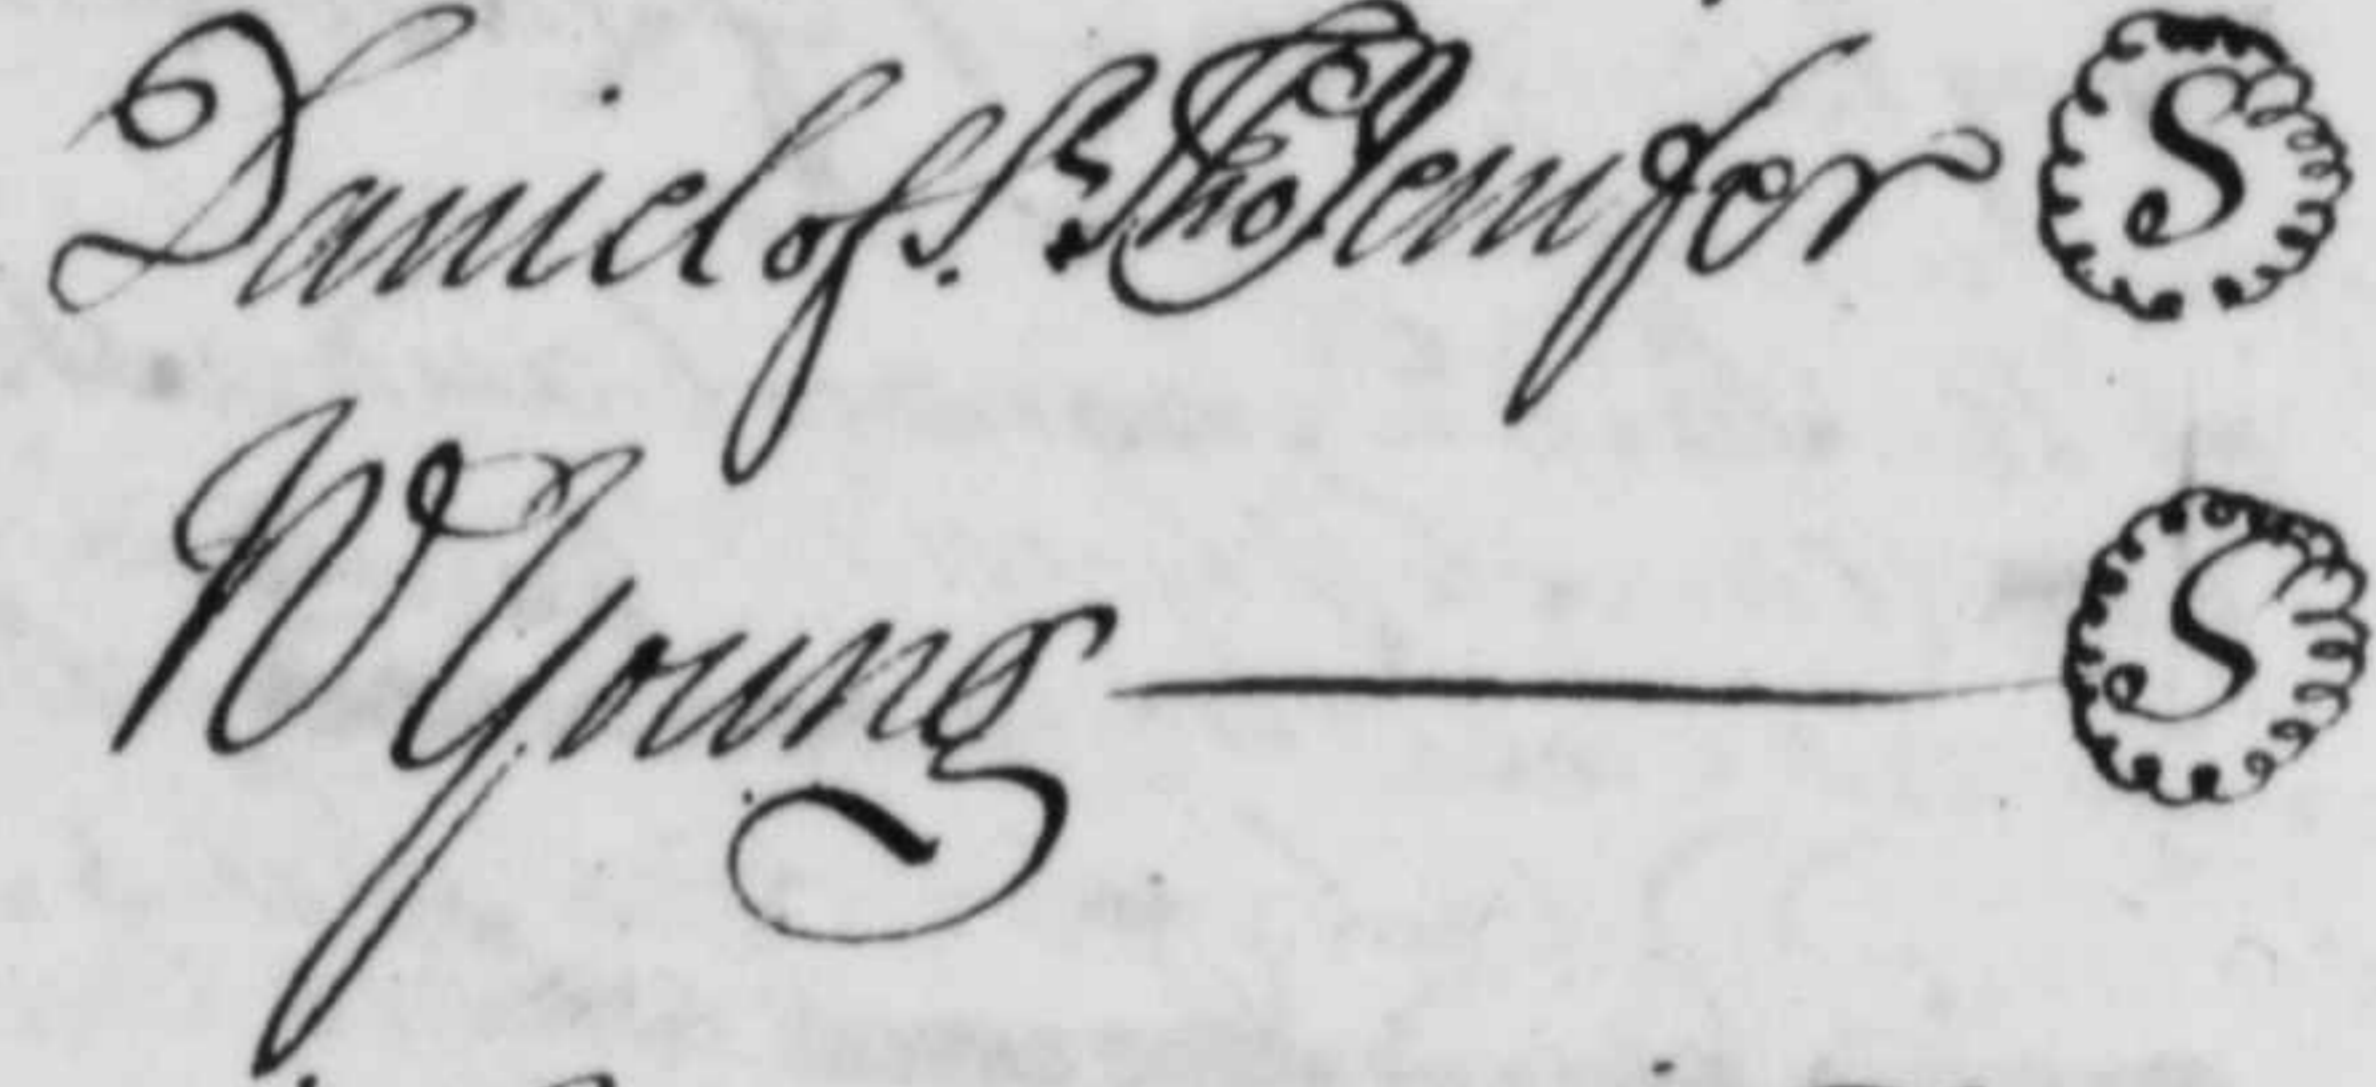 Daniel of St. Tho Jenifer S
W Young S